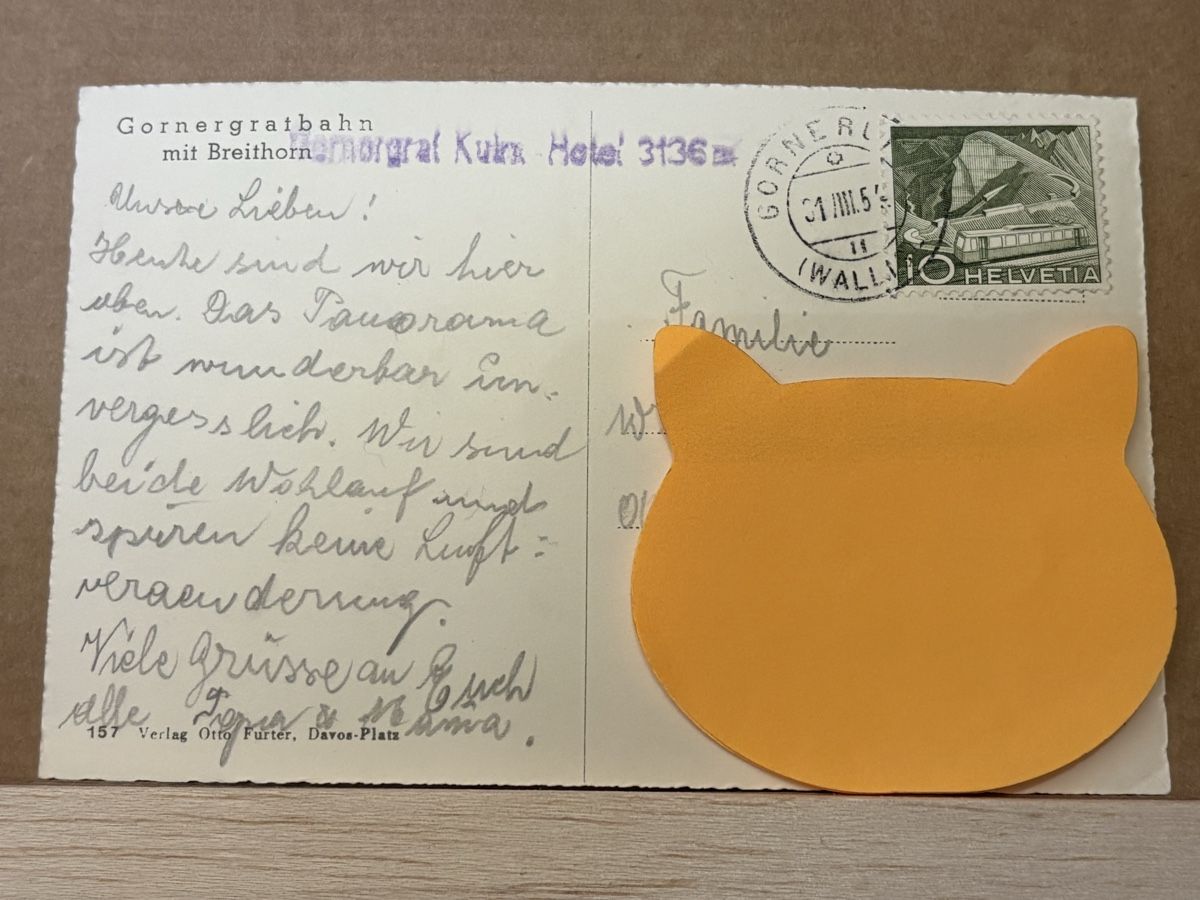 Gornergratbahn
mit Breithorn
Kulm Hotel 3136 m
GORNERGRAT
(WALLIS)
11
10 HELVETIA
Unsere Lieben!
Heute sind wir hier
oben. Das Panorama
ist wunderbar un-
vergesslich. Wir sind
beide Wohlauf und
spüren keine Luft=
veraenderung.
Viele Grüsse an Euch
alle Papa & Mama.
157 Verlag Otto Furter, Davos-Platz
Familie